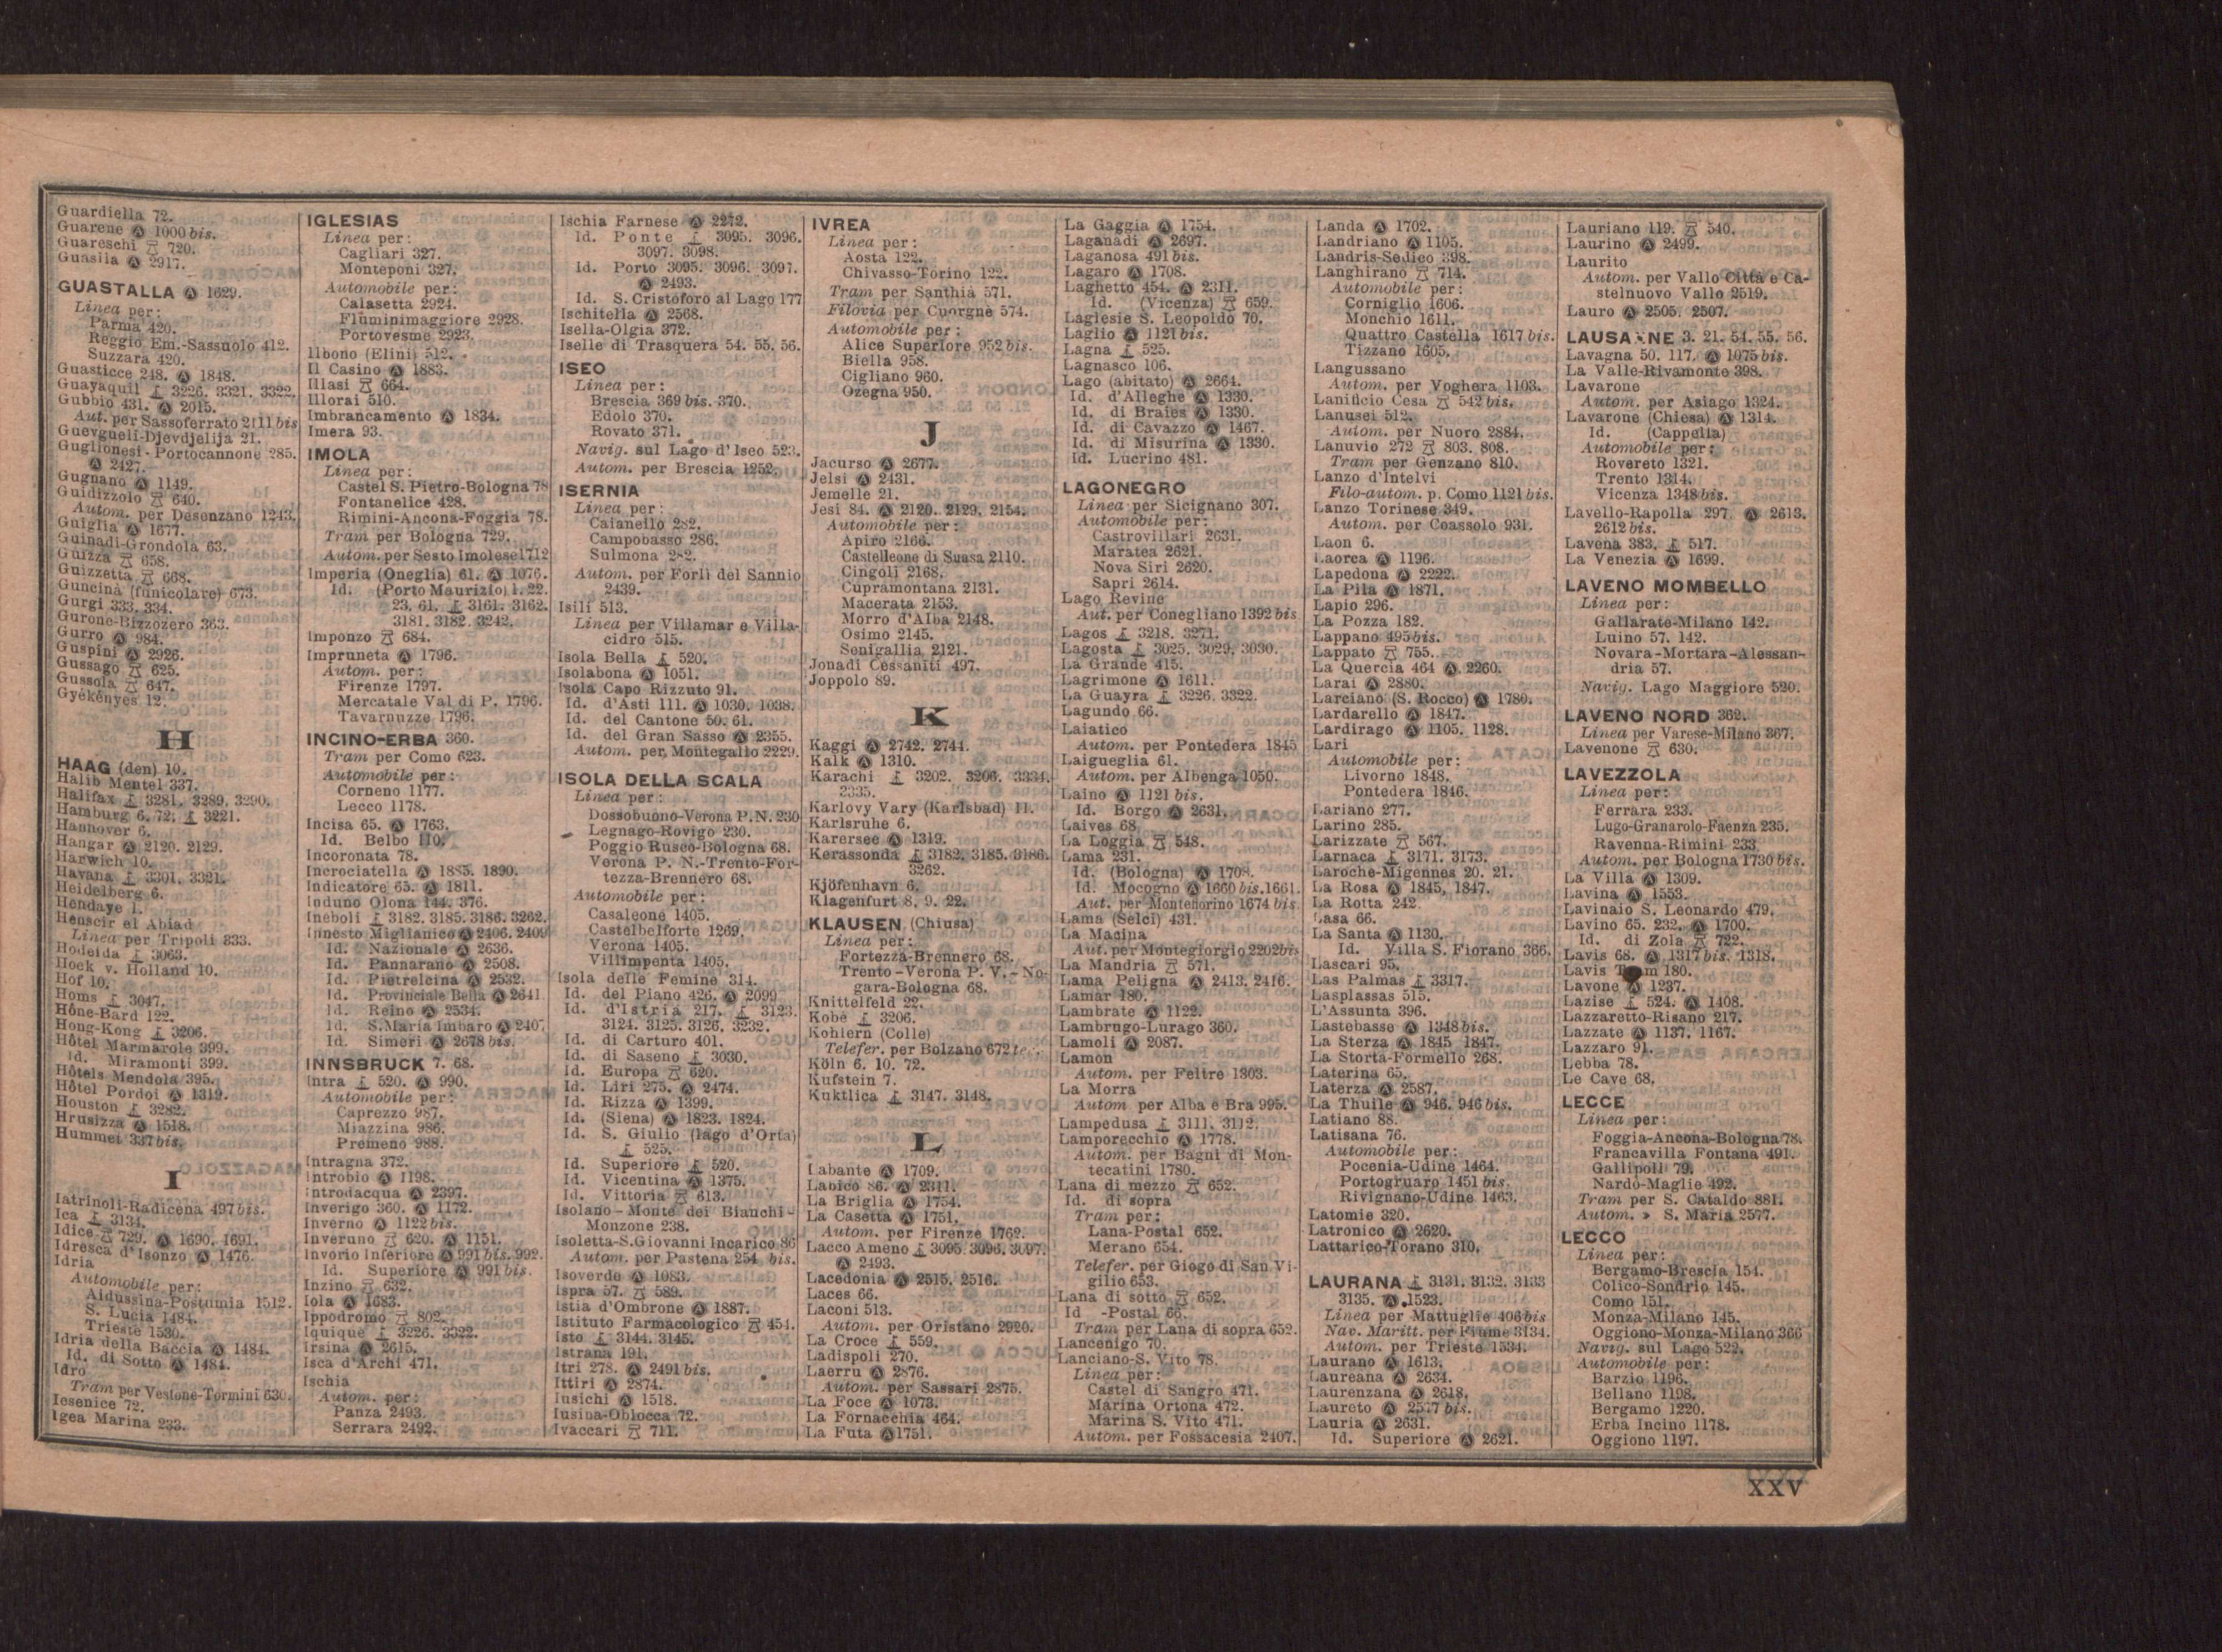 Guardiella 72.
Guarene Ⓐ 1000 bis.
Guareschi 720.
Guasila Ⓐ 2917.
GUASTALLA Ⓐ 1629.
Linea per:
Parma 420.
Reggio Em.-Sassuolo 412.
Suzzara 420.
Guasticce 248. Ⓐ 1848.
Guayaquil 3226. 3321. 3322.
Gubbio 431. Ⓐ 2015.
Aut. per Sassoferrato 2111 bis
Guevgueli-Djevdjelija 21.
Guglionesi-Portocannone 285.
Ⓐ 2427.
Gugnano Ⓐ 1149.
Guidizzolo 640.
Autom. per Desenzano 1243.
Guiglia Ⓐ 1677.
Guinadi-Grondola 63.
Guizza 658.
Guizzetta 668.
Guncina (funicolare) 673.
Gurgi 333. 334.
Gurone-Bizzozero 363.
Gurro Ⓐ 984.
Guspini Ⓐ 2926.
Gussago 625.
Gussola 647.
Gyékényes 12.
H
HAAG (den) 10.
Halib Mentel 337.
Halifax 3281. 3289. 3290.
Hamburg 6. 72. 3221.
Hannover 6.
Hangar Ⓐ 2120. 2129.
Harwich 10.
Havana 3301. 3321.
Heidelberg 6.
Hendaye 1.
Henscir el Abiad
Linea per Tripoli 333.
Hodeida 3063.
Hoek v. Holland 10.
Hof 10.
Homs 3047.
Hône-Bard 122.
Hong-Kong 3206.
Hôtel Marmarole 399.
Id. Miramonti 399.
Hôtels Mendola 395.
Hôtel Pordoi Ⓐ 1319.
Houston 3282.
Hrusizza Ⓐ 1518.
Hummet 337 bis.
I
Iatrinoli-Radicena 497 bis.
Ica 3134.
Idice 729. Ⓐ 1690. 1691.
Idresca d'Isonzo Ⓐ 1476.
Idria
Automobile per:
Aidussina-Postumia 1512.
S. Lucia 1484.
Trieste 1530.
Idria della Baccia Ⓐ 1484.
Id. di Sotto Ⓐ 1484.
Idro
Tram per Vestone-Tormini 630.
Iesenice 72.
Igea Marina 233.
IGLESIAS
Linea per:
Cagliari 327.
Monteponi 327.
Automobile per:
Calasetta 2924.
Fluminimaggiore 2928.
Portovesme 2923.
Ilbono (Elini) 512.
Il Casino Ⓐ 1883.
Illasi 664.
Illorai 510.
Imbrancamento Ⓐ 1834.
Imera 93.
IMOLA
Linea per:
Castel S. Pietro-Bologna 78
Fontanelice 428.
Rimini-Ancona-Foggia 78.
Tram per Bologna 729.
Autom. per Sesto Imolese 1712
Imperia (Oneglia) 61. Ⓐ 1076.
Id. (Porto Maurizio) 1. 22.
23. 61. 3161. 3162.
3181. 3182. 3242.
Imponzo 684.
Impruneta Ⓐ 1796.
Autom. per:
Firenze 1797.
Mercatale Val di P. 1796.
Tavarnuzze 1796.
INCINO-ERBA 360.
Tram per Como 623.
Automobile per:
Corneno 1177.
Lecco 1178.
Incisa 65. Ⓐ 1763.
Id. Belbo 110.
Incoronata 78.
Incrociatella Ⓐ 1885. 1890.
Indicatore 65. Ⓐ 1811.
Induno Olona 144. 376.
Ineboli 3182. 3185. 3186. 3262.
Innesto Miglianico Ⓐ 2406. 2409
Id. Nazionale Ⓐ 2636.
Id. Pannarano Ⓐ 2508.
Id. Pietrelcina Ⓐ 2532.
Id. Provinciale Bella Ⓐ 2641
Id. Reino Ⓐ 2534.
Id. S. Maria Imbaro Ⓐ 2407
Id. Simeri Ⓐ 2678 bis.
INNSBRUCK 7. 68.
Intra 520. Ⓐ 990.
Automobile per:
Caprezzo 987.
Miazzina 986.
Premeno 988.
Intragna 372.
Introbio Ⓐ 1198.
Introdacqua Ⓐ 2397.
Inverigo 360. Ⓐ 1172.
Inverno Ⓐ 1122 bis.
Inveruno 620. Ⓐ 1151.
Invorio Inferiore Ⓐ 991 bis. 992.
Id. Superiore Ⓐ 991 bis.
Inzino 632.
Iola Ⓐ 1683.
Ippodromo 802.
Iquique 3226. 3322.
Irsina Ⓐ 2615.
Isca d'Archi 471.
Ischia
Autom. per:
Panza 2493.
Serrara 2492.
Ischia Farnese Ⓐ 2272.
Id. Ponte 3095. 3096.
3097. 3098.
Id. Porto 3095. 3096. 3097.
Ⓐ 2493.
Id. S. Cristoforo al Lago 177
Ischitella Ⓐ 2568.
Isella-Olgia 372.
Iselle di Trasquera 54. 55. 56.
ISEO
Linea per:
Brescia 369 bis. 370.
Edolo 370.
Rovato 371.
Navig. sul Lago d'Iseo 523.
Autom. per Brescia 1252.
ISERNIA
Linea per:
Caianello 282.
Campobasso 286.
Sulmona 282.
Autom. per Forlì del Sannio
2439.
Isili 513.
Linea per Villamar e Villa-
cidro 515.
Isola Bella 520.
Isolabona Ⓐ 1051.
Isola Capo Rizzuto 91.
Id. d'Asti 111. Ⓐ 1030. 1038.
Id. del Cantone 50. 61.
Id. del Gran Sasso Ⓐ 2355.
Autom. per Montegallo 2229.
ISOLA DELLA SCALA
Linea per:
Dossobuono-Verona P.N. 230
Legnago-Rovigo 230.
Poggio Rusco-Bologna 68.
Verona P. N.-Trento-For-
tezza-Brennero 68.
Automobile per:
Casaleone 1405.
Castelbelforte 1269.
Verona 1405.
Villimpenta 1405.
Isola delle Femine 314.
Id. del Piano 426. Ⓐ 2099
Id. d'Istria 217. 3123.
3124. 3125. 3126. 3232.
Id. di Carturo 401.
Id. di Saseno 3030.
Id. Europa 620.
Id. Liri 275. Ⓐ 2474.
Id. Rizza Ⓐ 1399.
Id. (Siena) Ⓐ 1823. 1824.
Id. S. Giulio (lago d'Orta)
525.
Id. Superiore 520.
Id. Vicentina Ⓐ 1375.
Id. Vittoria 613.
Isolano-Monte dei Bianchi-
Monzone 238.
Isoletta-S. Giovanni Incarico 86
Autom. per Pastena 254 bis.
Isoverde Ⓐ 1083.
Ispra 57. 589.
Istia d'Ombrone Ⓐ 1887.
Istituto Farmacologico 454.
Isto 3144. 3145.
Istrana 191.
Itri 278. Ⓐ 2491 bis.
Ittiri Ⓐ 2874.
Iusichi Ⓐ 1518.
Iusina-Oblocca 72.
Ivaccari 711.
IVREA
Linea per:
Aosta 122.
Chivasso-Torino 122.
Tram per Santhià 571.
Filovia per Cuorgnè 574.
Automobile per:
Alice Superiore 952 bis.
Biella 958.
Cigliano 960.
Ozegna 950.
J
Jacurso Ⓐ 2677.
Jelsi Ⓐ 2431.
Jemelle 21.
Jesi 84. Ⓐ 2120. 2129. 2154.
Automobile per:
Apiro 2166.
Castelleone di Suasa 2110.
Cingoli 2168.
Cupramontana 2131.
Macerata 2153.
Morro d'Alba 2148.
Osimo 2145.
Senigallia 2121.
Jonadi Cessaniti 497.
Joppolo 89.
K
Kaggi Ⓐ 2742. 2744.
Kalk Ⓐ 1310.
Karachi 3202. 3206. 3334.
3335.
Karlovy Vary (Karlsbad) 11.
Karlsruhe 6.
Karersee Ⓐ 1319.
Kerassonda 3182. 3185. 3186.
3262.
Kjöfenhavn 6.
Klagenfurt 8. 9. 22.
KLAUSEN (Chiusa)
Linea per:
Fortezza-Brennero 68.
Trento-Verona P. V.-No-
gara-Bologna 68.
Knittelfeld 22.
Kobé 3206.
Kohlern (Colle)
Telefer. per Bolzano 672
Köln 6. 10. 72.
Kufstein 7.
Kuktlica 3147. 3148.
L
Labante Ⓐ 1709.
Labico 86. Ⓐ 2311.
La Briglia Ⓐ 1754.
La Casetta Ⓐ 1751.
Autom. per Firenze 1762.
Lacco Ameno 3095. 3096. 3097.
Ⓐ 2493.
Lacedonia Ⓐ 2515. 2516.
Laces 66.
Laconi 513.
Autom. per Oristano 2920.
La Croce 559.
Ladispoli 270.
Laerru Ⓐ 2876.
Autom. per Sassari 2875.
La Foce Ⓐ 1073.
La Fornacchia 464.
La Futa Ⓐ 1751.
La Gaggia Ⓐ 1754.
Laganadi Ⓐ 2697.
Laganosa 491 bis.
Lagaro Ⓐ 1708.
Laghetto 454. Ⓐ 2311.
Id. (Vicenza) 659.
Laglesie S. Leopoldo 70.
Laglio Ⓐ 1121 bis.
Lagna 525.
Lagnasco 106.
Lago (abitato) Ⓐ 2664.
Id. d'Alleghe Ⓐ 1330.
Id. di Braies Ⓐ 1330.
Id. di Cavazzo Ⓐ 1467.
Id. di Misurina Ⓐ 1330.
Id. Lucrino 481.
LAGONEGRO
Linea per Sicignano 307.
Automobile per:
Castrovillari 2631.
Maratea 2621.
Nova Siri 2620.
Sapri 2614.
Lago Revine
Aut. per Conegliano 1392 bis
Lagos 3218. 3271.
Lagosta 3025. 3029. 3030.
La Grande 415.
Lagrimone Ⓐ 1611.
La Guayra 3226. 3322.
Lagundo 66.
Laiatico
Autom. per Pontedera 1845
Laigueglia 61.
Autom. per Albenga 1050.
Laino Ⓐ 1121 bis.
Id. Borgo Ⓐ 2631.
Laives 68.
La Loggia 548.
Lama 231.
Id. (Bologna) Ⓐ 1708.
Id. Mocogno Ⓐ 1660 bis. 1661.
Aut. per Montefiorino 1674 bis
Lama (Selci) 431.
La Macina
Aut. per Montegiorgio 2202 bis
La Mandria 571.
Lama Peligna Ⓐ 2413. 2416.
Lamar 180.
Lambrate Ⓐ 1122.
Lambrugo-Lurago 360.
Lamoli Ⓐ 2087.
Lamon
Autom. per Feltre 1303.
La Morra
Autom per Alba e Bra 995.
Lampedusa 3111. 3112.
Lamporecchio Ⓐ 1778.
Autom. per Bagni di Mon-
tecatini 1780.
Lana di mezzo 652.
Id. di sopra
Tram per:
Lana-Postal 652.
Merano 654.
Telefer. per Giogo di San Vi-
gilio 653.
Lana di sotto 652.
Id -Postal 66.
Tram per Lana di sopra 652.
Lancenigo 70.
Lanciano-S. Vito 78.
Linea per:
Castel di Sangro 471.
Marina Ortona 472.
Marina S. Vito 471.
Autom. per Fossacesia 2407.
Landa Ⓐ 1702.
Landriano Ⓐ 1105.
Landris-Sedico 398.
Langhirano 714.
Automobile per:
Corniglio 1606.
Monchio 1611.
Quattro Castella 1617 bis.
Tizzano 1605.
Langussano
Autom. per Voghera 1103.
Lanificio Cesa 542 bis.
Lanusei 512.
Autom. per Nuoro 2884.
Lanuvio 272 803. 808.
Tram per Genzano 810.
Lanzo d'Intelvi
Filo-autom. p. Como 1121 bis.
Lanzo Torinese 349.
Autom. per Coassolo 931.
Laon 6.
Laorca Ⓐ 1196.
Lapedona Ⓐ 2222.
La Pila Ⓐ 1871.
Lapio 296.
La Pozza 182.
Lappano 495 bis.
Lappato 755.
La Quercia 464 Ⓐ 2260.
Larai Ⓐ 2880.
Larciano (S. Rocco) Ⓐ 1780.
Lardarello Ⓐ 1847.
Lardirago Ⓐ 1105. 1128.
Lari
Automobile per:
Livorno 1848.
Pontedera 1846.
Lariano 277.
Larino 285.
Larizzate 567.
Larnaca 3171. 3173.
Laroche-Migennes 20. 21.
La Rosa Ⓐ 1845. 1847.
La Rotta 242
Lasa 66.
La Santa Ⓐ 1130.
Id. Villa S. Fiorano 366.
Lascari 95.
Las Palmas 3317.
Lasplassas 515.
L'Assunta 396.
Lastebasse Ⓐ 1348 bis.
La Sterza Ⓐ 1845 1847.
La Storta-Formello 268.
Laterina 65.
Laterza Ⓐ 2587.
La Thuile Ⓐ 946. 946 bis.
Latiano 88.
Latisana 76.
Automobile per:
Pocenia-Udine 1464.
Portogruaro 1451 bis.
Rivignano-Udine 1463.
Latomie 320.
Latronico Ⓐ 2620.
Lattarico-Torano 310.
LAURANA 3131. 3132. 3133
3135. Ⓐ 1523.
Linea per Mattuglie 406 bis
Nav. Maritt. per Fiume 3134.
Autom. per Trieste 1534.
Laurano Ⓐ 1613.
Laureana Ⓐ 2634.
Laurenzana Ⓐ 2618.
Laureto Ⓐ 2577 bis.
Lauria Ⓐ 2631.
Id. Superiore Ⓐ 2621.
Lauriano 119. 540.
Laurino Ⓐ 2499.
Laurito
Autom. per Vallo Città e Ca-
stelnuovo Vallo 2519.
Lauro Ⓐ 2505. 2507.
LAUSANNE 3. 21. 54. 55. 56.
Lavagna 50. 117. Ⓐ 1075 bis.
La Valle-Rivamonte 398.
Lavarone
Autom. per Asiago 1324.
Lavarone (Chiesa) Ⓐ 1314.
Id. (Cappella)
Automobile per:
Rovereto 1321.
Trento 1314.
Vicenza 1348 bis.
Lavello-Rapolla 297. Ⓐ 2613.
2612 bis.
Lavena 383. 517.
La Venezia Ⓐ 1699.
LAVENO MOMBELLO
Linea per:
Gallarate-Milano 142.
Luino 57. 142.
Novara-Mortara-Alessan-
dria 57.
Navig. Lago Maggiore 520.
LAVENO NORD 362.
Linea per Varese-Milano 367.
Lavenone 630.
LAVEZZOLA
Linea per:
Ferrara 233.
Lugo-Granarolo-Faenza 235.
Ravenna-Rimini 233
Autom. per Bologna 1730 bis.
La Villa Ⓐ 1309.
Lavina Ⓐ 1553.
Lavinaio S. Leonardo 479.
Lavino 65. 232. Ⓐ 1700.
Id. di Zola 722.
Lavis 68. Ⓐ 1317 bis. 1318.
Lavis 180.
Lavone Ⓐ 1237.
Lazise 524. Ⓐ 1408.
Lazzaretto-Risano 217.
Lazzate Ⓐ 1137. 1167.
Lazzaro 91.
Lebba 78.
Le Cave 68.
LECCE
Linea per:
Foggia-Ancona-Bologna 78.
Francavilla Fontana 491.
Gallipoli 79.
Nardò-Maglie 492.
Tram per S. Cataldo 881.
Autom. » S. Maria 2577.
LECCO
Linea per:
Bergamo-Brescia 154.
Colico-Sondrio 145.
Como 151.
Monza-Milano 145.
Oggiono-Monza-Milano 366
Navig. sul Lago 522.
Automobile per:
Barzio 1196.
Bellano 1198.
Bergamo 1220.
Erba Incino 1178.
Oggiono 1197.
XXV